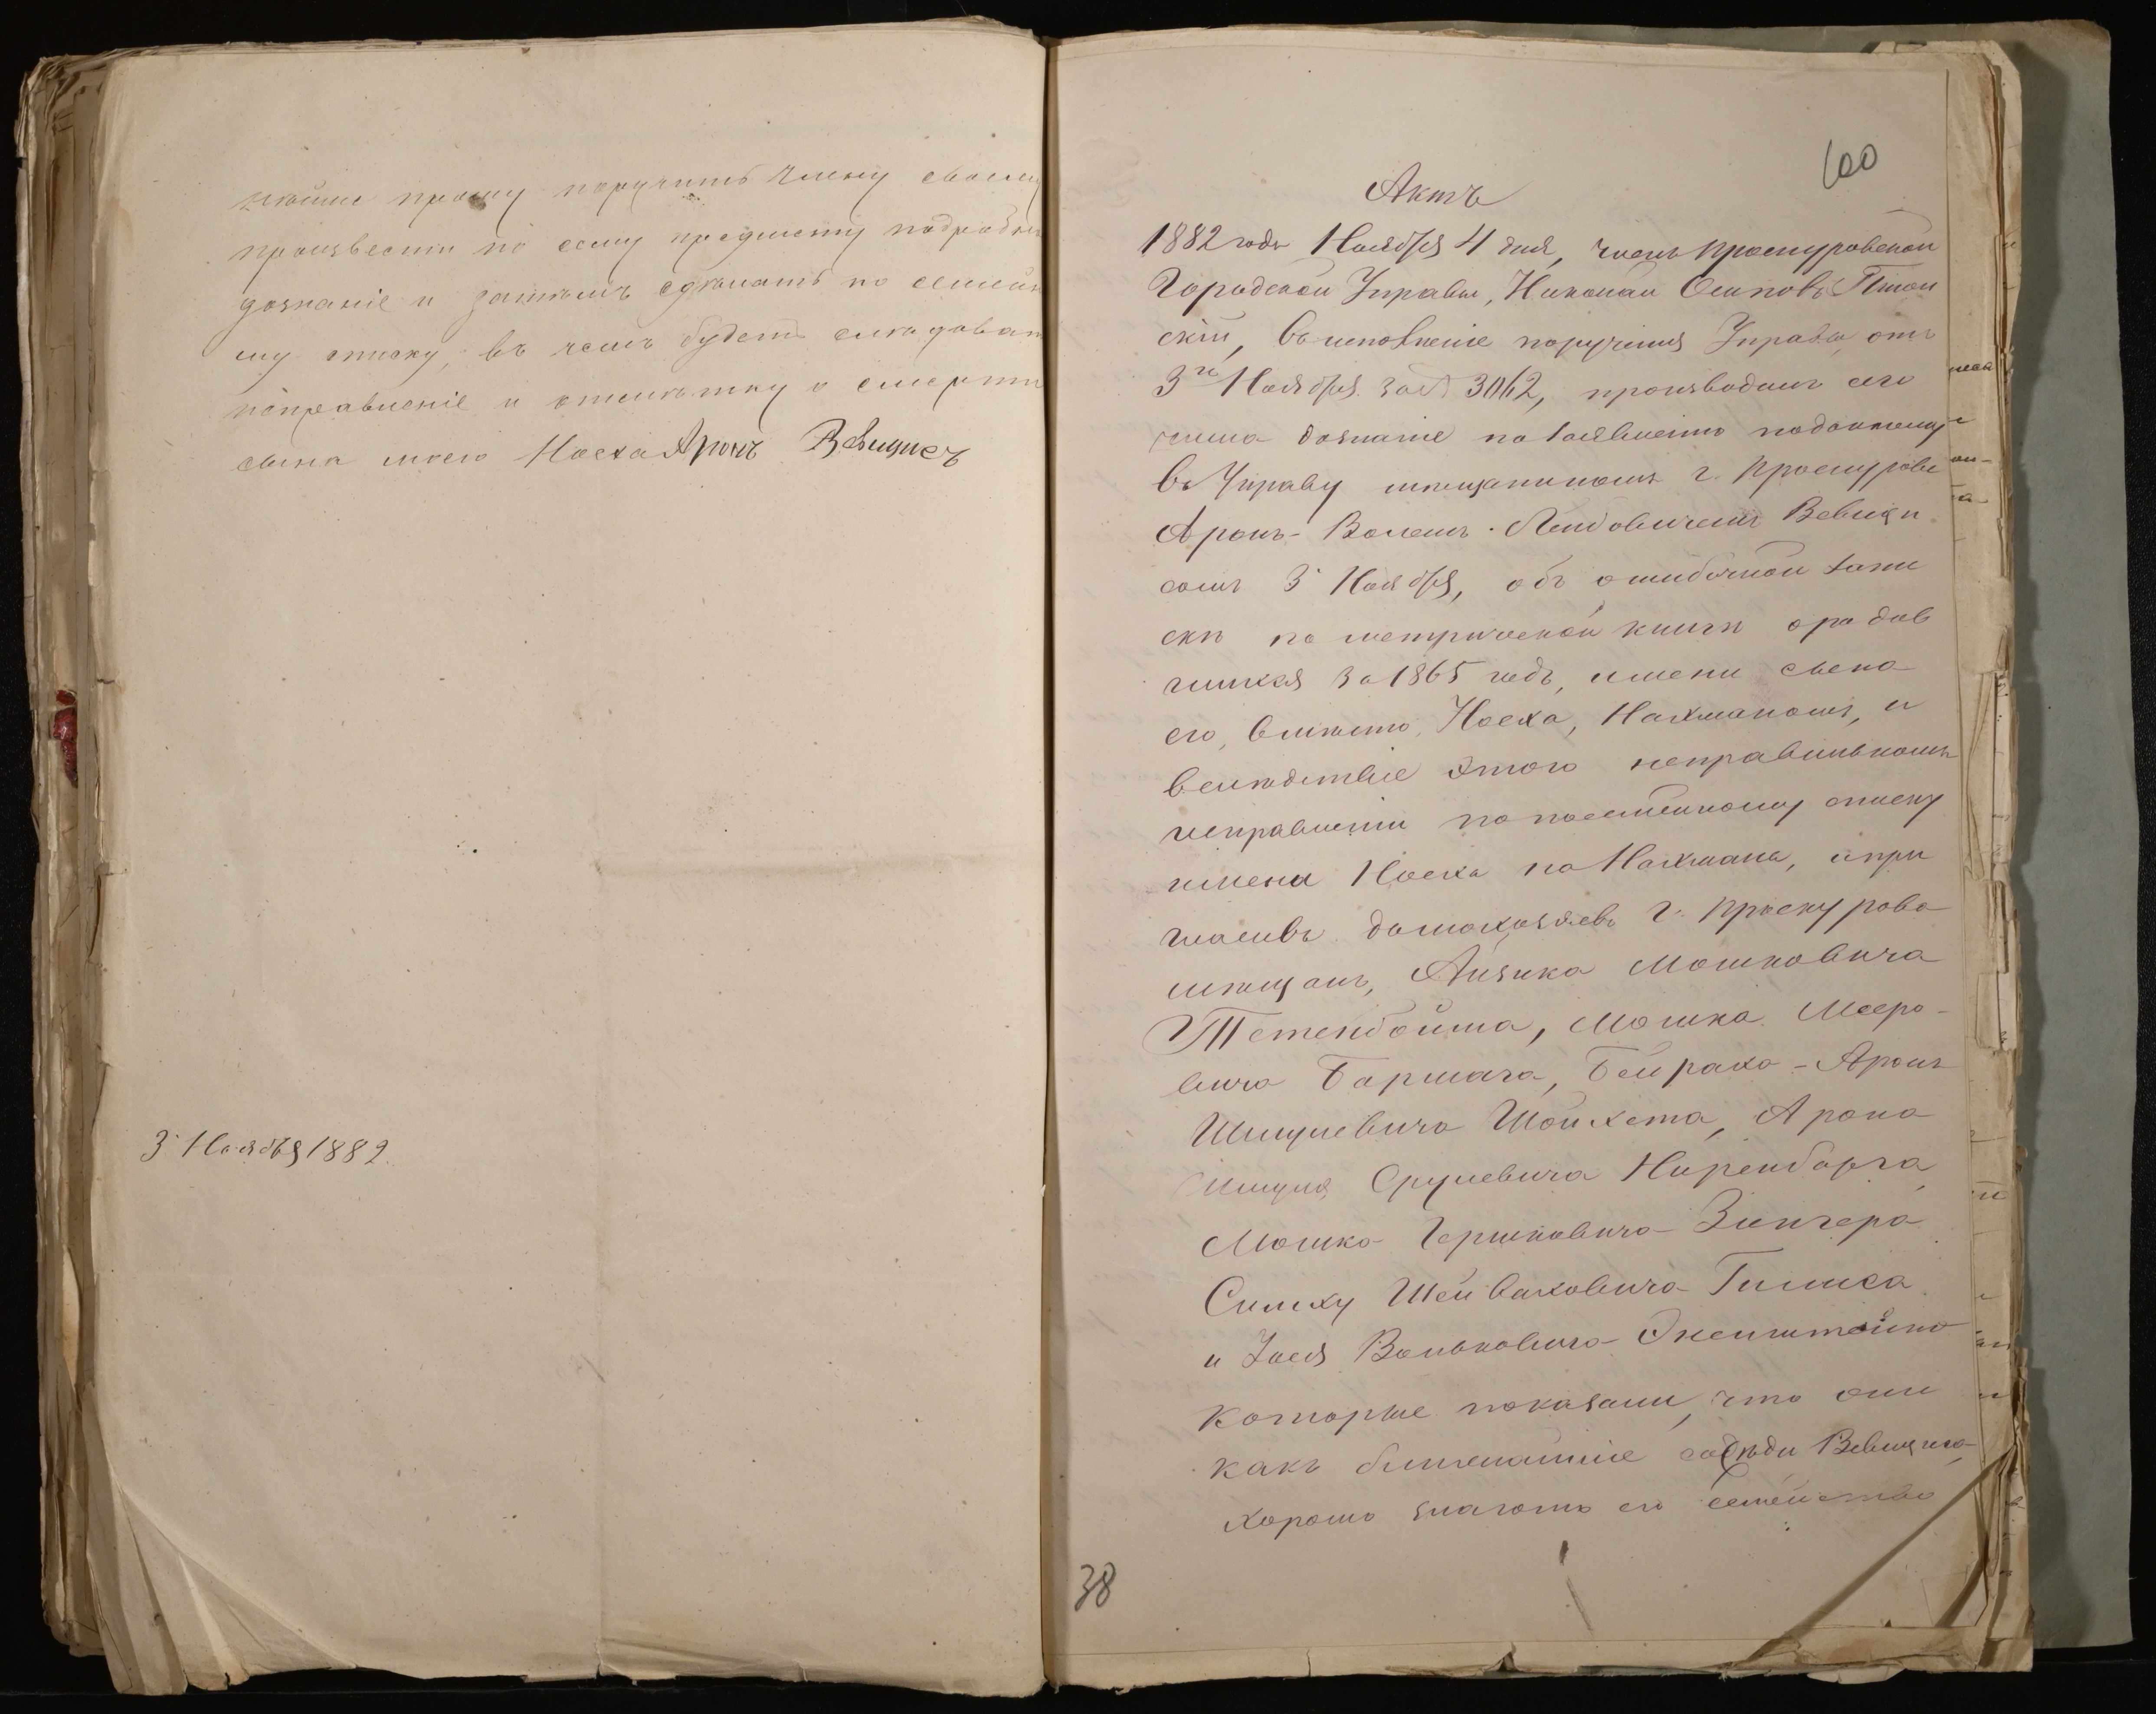 нѣйше прошу поручить члену своему
произвести по сему предмету подробн
дознаніе и затѣмъ сдѣлать по семейн
му списку, въ чемъ будетъ слѣдоват
поправленіе и отмѣтку о смерти
сына моего Ноеха Аронъ
3 Ноября 1882.
100
Актъ
1882 года Ноября 4 дня, членъ Проскуровской
Городской Управы, Николай Осиповъ
скій, во исполненіе порученія Управы отъ
3го Ноября за № 3062, производилъ сего
числа дознаніе по заявленію поданному
въ Управу мѣщаниномъ г. Проскурова
Аронъ-Волемъ Лейбовичемъ Вевици
сомъ 3 Ноября, объ ошибочной запи
скѣ по метрической книги о родив
шихся за 1865 годъ, имени сына
его, вмѣсто Ноеха, Нахманомъ, и
вслѣдствіе этого неправильномъ
исправленіи по посемейному списку
имени Ноеха на Нахмана, и при
гласивъ домохозяевъ г. Проскурова
мѣщанъ, Айзика Мошковича
Тетенбойма, Мошка Мееро-
вича Бармача, Бейраха-Аронъ
Шмулевича Шойхета, Арона
Шмуля Срулевича Ниренборга,
Мошко Гершковича Зингера
Симху Шейваховича Гилиса
и Зося Вольковича
которые показали, что они
какъ ближайшіе сосѣди Вевициса
хорошо знаютъ его семейство
38